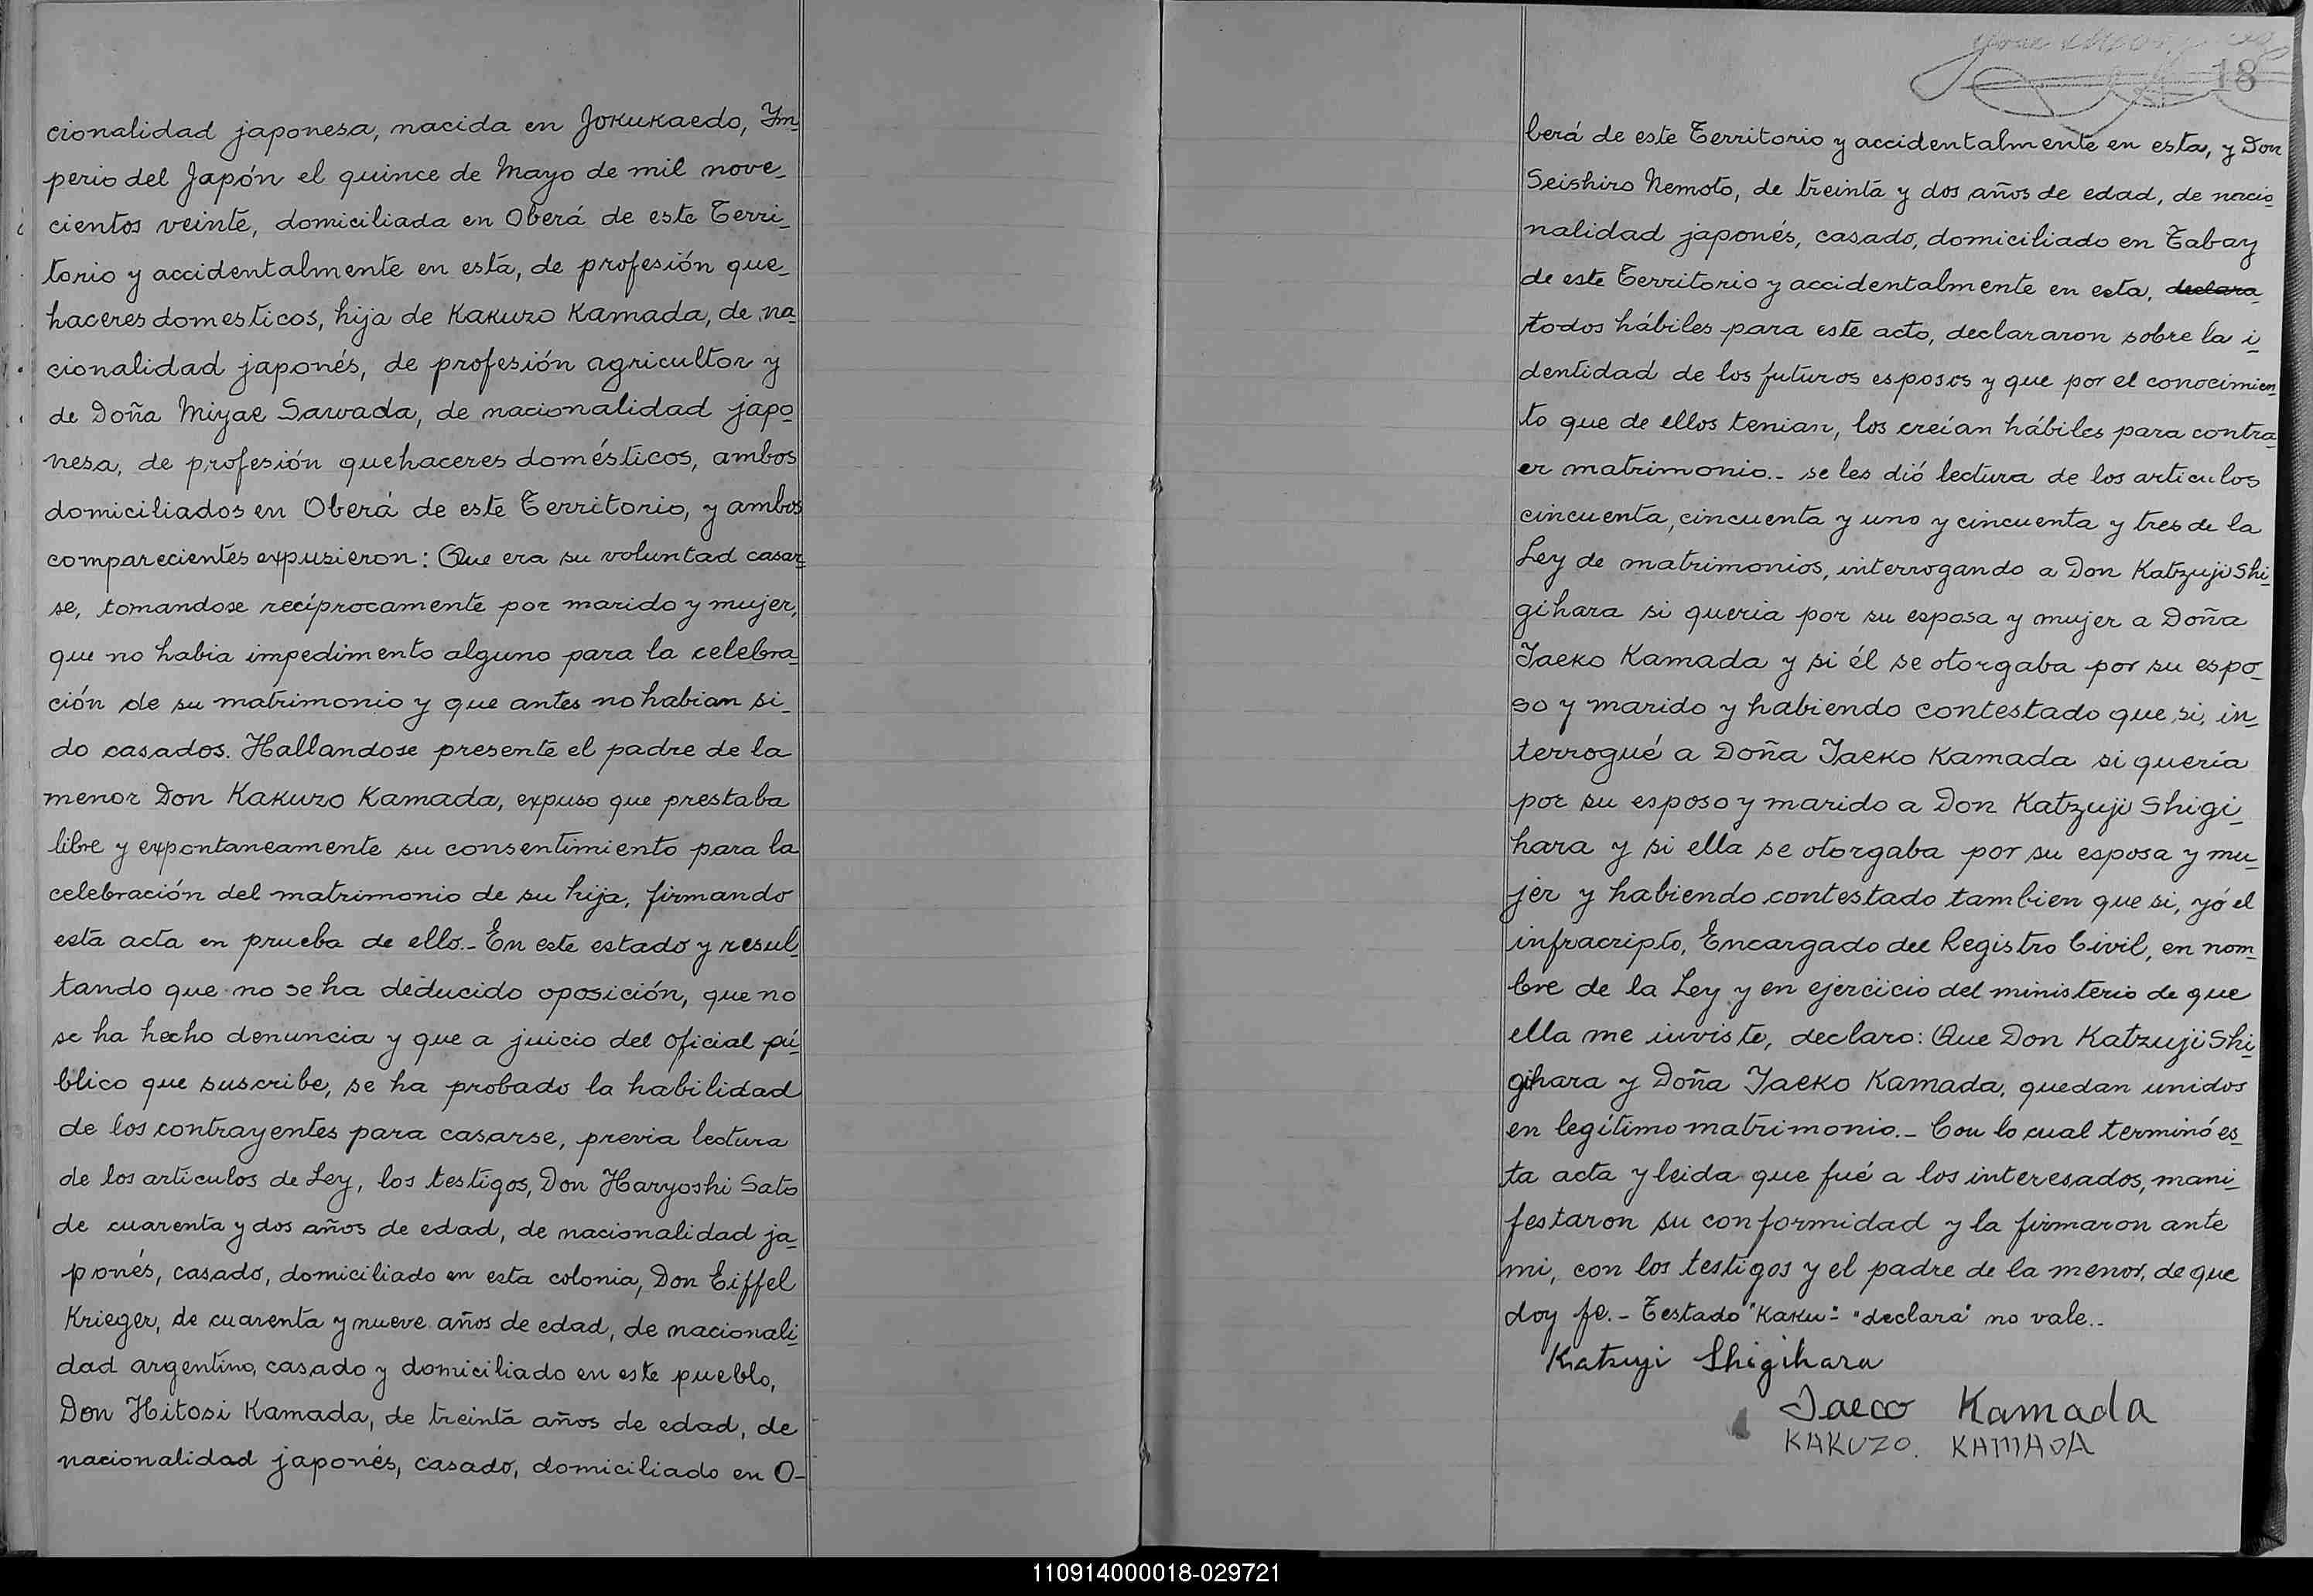 cionalidad japonesa, nacida en Jokukaedo, Ym-
perio del Japón el quince de Mayo de mil nove-
cientos veinte, domiciliada en Oberá de este Terri-
torio y accidentalmente en esta, de profesión que-
haceres domesticos, hija de Kakuzo Kamada, de na-
cionalidad japonés, de profesión agricultor y
de Doña Miyae Sawada, de nacionalidad japo-
nesa, de profesión quehaceres domésticos, ambos
domiciliados en Oberá de este Territorio, y ambos
comparecientes expusieron: Que era su voluntad casar-
se, tomandose recíprocamente por marido y mujer,
que no habia impedimento alguno para la celebra-
ción de su matrimonio y que antes no habian si-
do casados. Hallandose presente el padre de la
menor Don Kakuzo Kamada, expuso que prestaba
libre y expontaneamente su consentimiento para la
celebración del matrimonio de su hija, firmando
esta acta en prueba de ello.- En este estado y resul-
tando que no se ha deducido oposición, que no
se ha hecho denuncia y que a juicio del oficial pú-
blico que suscribe, se ha probado la habilidad
de los contrayentes para casarse, previa lectura
de los articulos de Ley, los testigos, Don Haryoshi Sato
de cuarenta y dos años de edad, de nacionalidad ja-
ponés, casado, domiciliado en esta colonia, Don Eiffel
Krieger, de cuarenta y nueve años de edad, de nacionali-
dad argentino, casado y domiciliado en este pueblo,
Don Hitosi Kamada, de treinta años de edad, de
nacionalidad japonés, casado, domiciliado en O-
18
berá de este Territorio y accidentalmente en esta, y Don
Seishiro Nemoto, de treinta y dos años de edad, de nacio-
nalidad japonés, casado, domiciliado en Tabay
de este Territorio y accidentalmente en esta, declara
todos hábiles para este acto, declararon sobre la i-
dentidad de los futuros esposos y que por el conocimien-
to que de ellos tenian, los creían hábiles para contra-
er matrimonio.- se les dió lectura de los articulos
cincuenta, cincuenta y uno y cincuenta y tres de la
Ley de matrimonios, interrogando a Don Katzuji Shi-
gihara si queria por su esposa y mujer a Doña
Taeko Kamada y si él se otorgaba por su espo-
so y marido y habiendo contestado que si, in-
terrogué a Doña Taeko Kamada si quería
por su esposo y marido a Don Katzuji Shigi-
hara y si ella se otorgaba por su esposa y mu-
jer y habiendo contestado tambien que si, yó el
infrascripto, Encargado del Registro Civil, en nom-
bre de la Ley y en ejercicio del ministerio de que
ella me inviste, declaro: Que Don Katzuji Shi-
gihara y Doña Taeko Kamada, quedan unidos
en legítimo matrimonio.- Con lo cual terminó es-
ta acta y leida que fué a los interesados, mani-
festaron su conformidad y la firmaron ante
mi, con los testigos y el padre de la menor, de que
doy fe.- Testado "Kaku"- "declara" no vale.-
Katzuji Shigihara
Taeco Kamada
KAKUZO. KAMADA
110914000018-029721